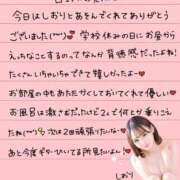 今日はしおりとあそんでくれてありがとう
ございました(**)学校休みの日にお昼から
えっちなことするのってなんか背徳感だったよね!
たくさんいちゃいちゃできて嬉しかったよー
お部屋の中もあたたかくしておいてくれて優しい
お風呂は激さむだったけど2人で何とか乗りこえ
たね(**)今度は2回頑張りたいな
あと今度ギターひいてる所見たいよん!
しおり